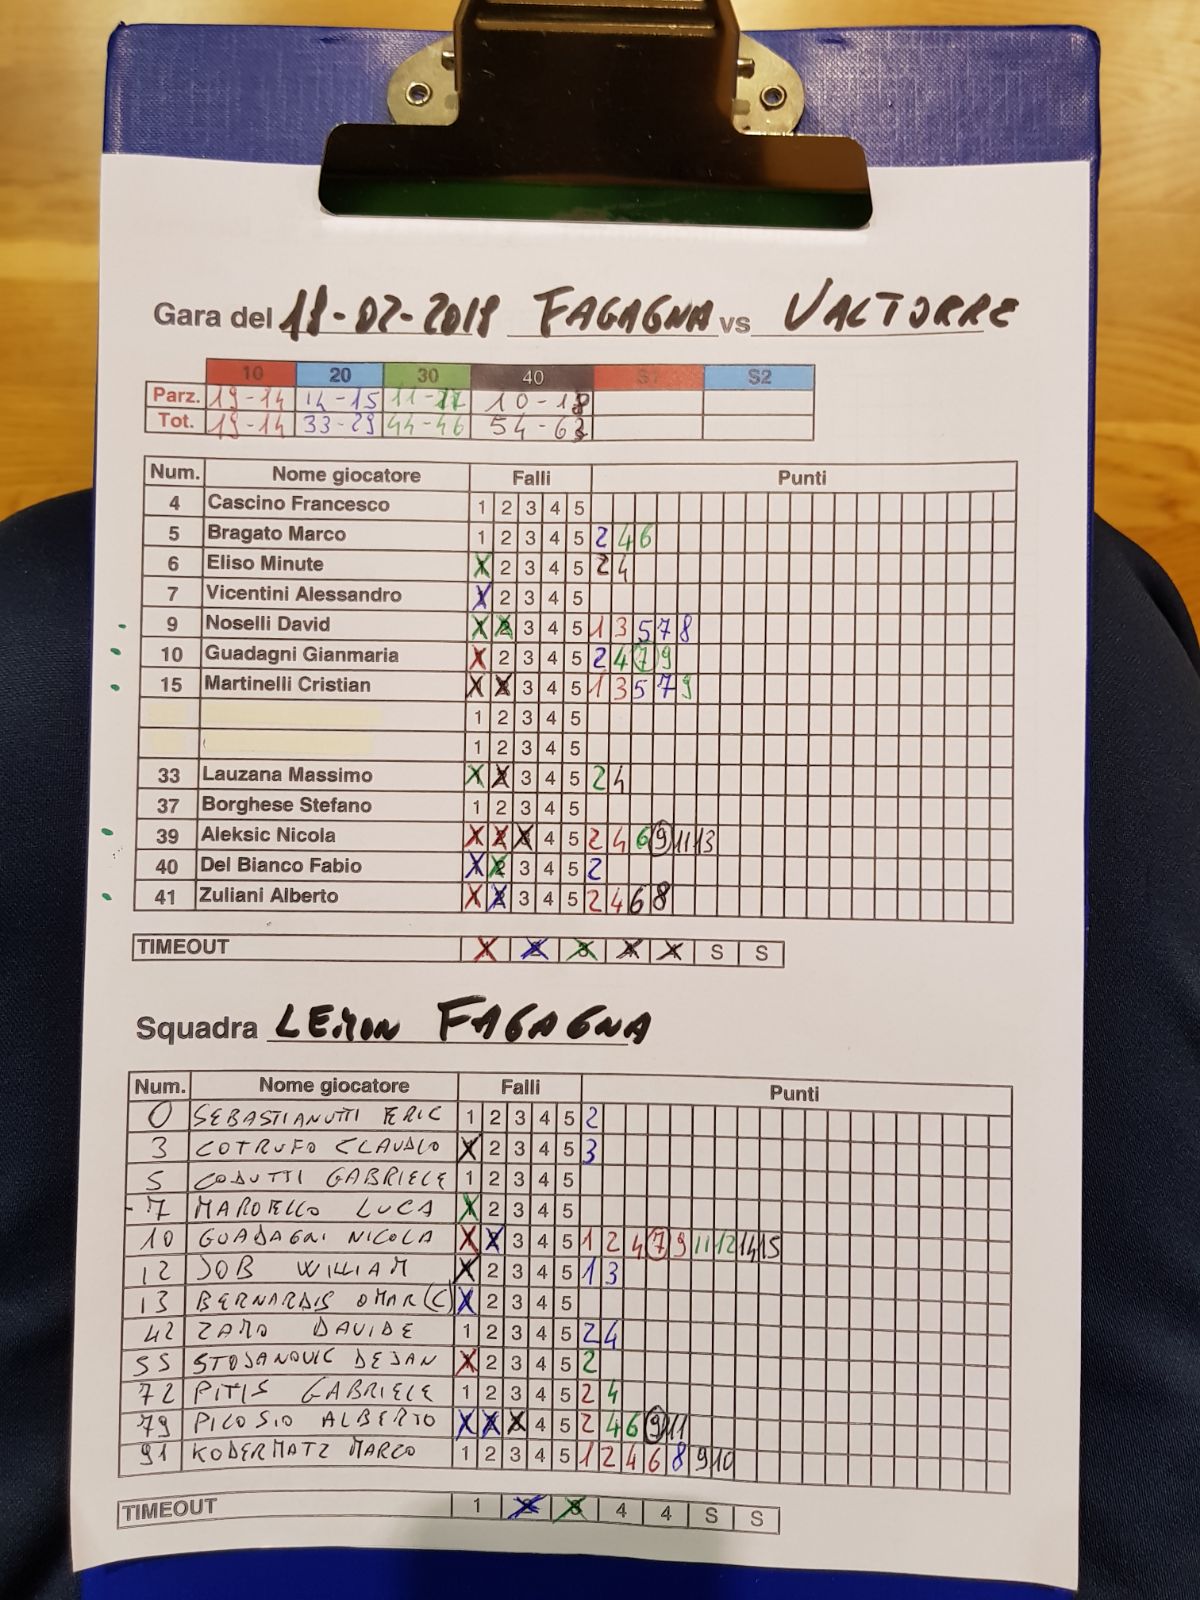 Gara del 18-02-2018 FAGAGNA vs VALTORRE
10 20 30 40 S1 S2
Parz. 19-14 14-15 11-17 10-18
Tot. 19-14 33-29 44-46 54-63
Num. Nome giocatore Falli Punti
4 Cascino Francesco 1 2 3 4 5
5 Bragato Marco 1 2 3 4 5 2 4 6
6 Eliso Minute X 2 3 4 5 2 4
7 Vicentini Alessandro X 2 3 4 5
9 Noselli David X X 3 4 5 1 3 5 7 8
10 Guadagni Gianmaria X 2 3 4 5 2 4 7 9
15 Martinelli Cristian X X 3 4 5 1 3 5 7 9
1 2 3 4 5
1 2 3 4 5
33 Lauzana Massimo X X 3 4 5 2 4
37 Borghese Stefano 1 2 3 4 5
39 Aleksic Nicola X X X 4 5 2 4 6 9 11 13
40 Del Bianco Fabio X X 3 4 5 2
41 Zuliani Alberto X X 3 4 5 2 4 6 8
TIMEOUT X X X X X S S
Squadra LEMON FAGAGNA
Num. Nome giocatore Falli Punti
0 SEBASTIANUTTI ERIC 1 2 3 4 5 2
3 COTRUFO CLAUDIO X 2 3 4 5 3
5 CODUTTI GABRIELE 1 2 3 4 5
7 MAROELLO LUCA X 2 3 4 5
10 GUADAGNI NICOLA X X 3 4 5 1 2 4 7 9 11 12 14 15
12 JOB WILLIAM X 2 3 4 5 1 3
13 BERNARDIS OMAR (C) X 2 3 4 5
42 ZAMO DAVIDE 1 2 3 4 5 2 4
55 STOJANOVIC DEJAN X 2 3 4 5 2
72 PITIS GABRIELE 1 2 3 4 5 2 4
79 PICOSIO ALBERTO X X X 4 5 2 4 6 9 11
91 KODERMATZ MARCO 1 2 3 4 5 1 2 4 6 8 9 10
TIMEOUT 1 X X 4 4 S S